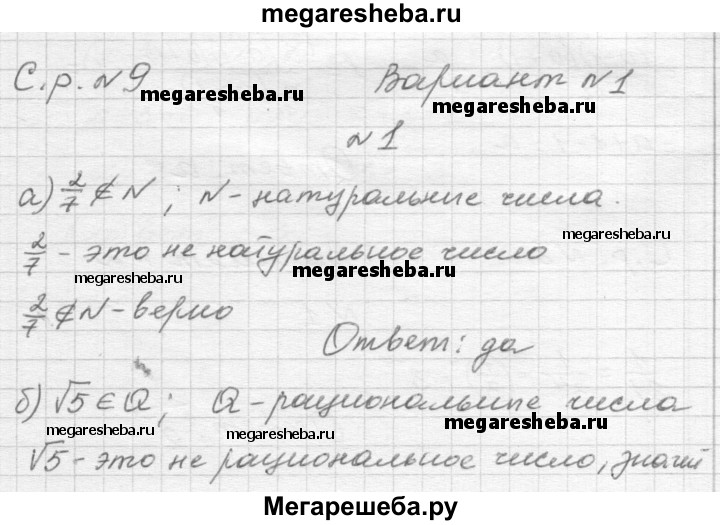 megaresheba.ru
С.р. №9 Вариант №1
megaresheba.ru megaresheba.ru
№1
а) 2/7 ∉ N; N - натуральные числа.
2/7 - это не натуральное число
megaresheba.ru megaresheba.ru
2/7 ∉ N - верно
Ответ: да
б) √5 ∈ Q; Q - рациональные числа
megaresheba.ru megaresheba.ru megaresheba.ru
√5 - это не рациональное число, значит
Мегарешеба.ру